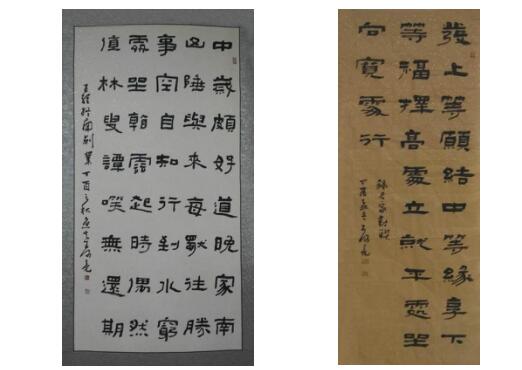 中歲頗好道晚家南
山陲興來每獨往勝
事空自知行到水窮
處坐看雲起時偶然
值林叟譚咲無還期
王維終南別業 丁酉之秋
發上等願結中等緣享下
等福擇高處立就平處坐
向寬處行
對聯
丁酉